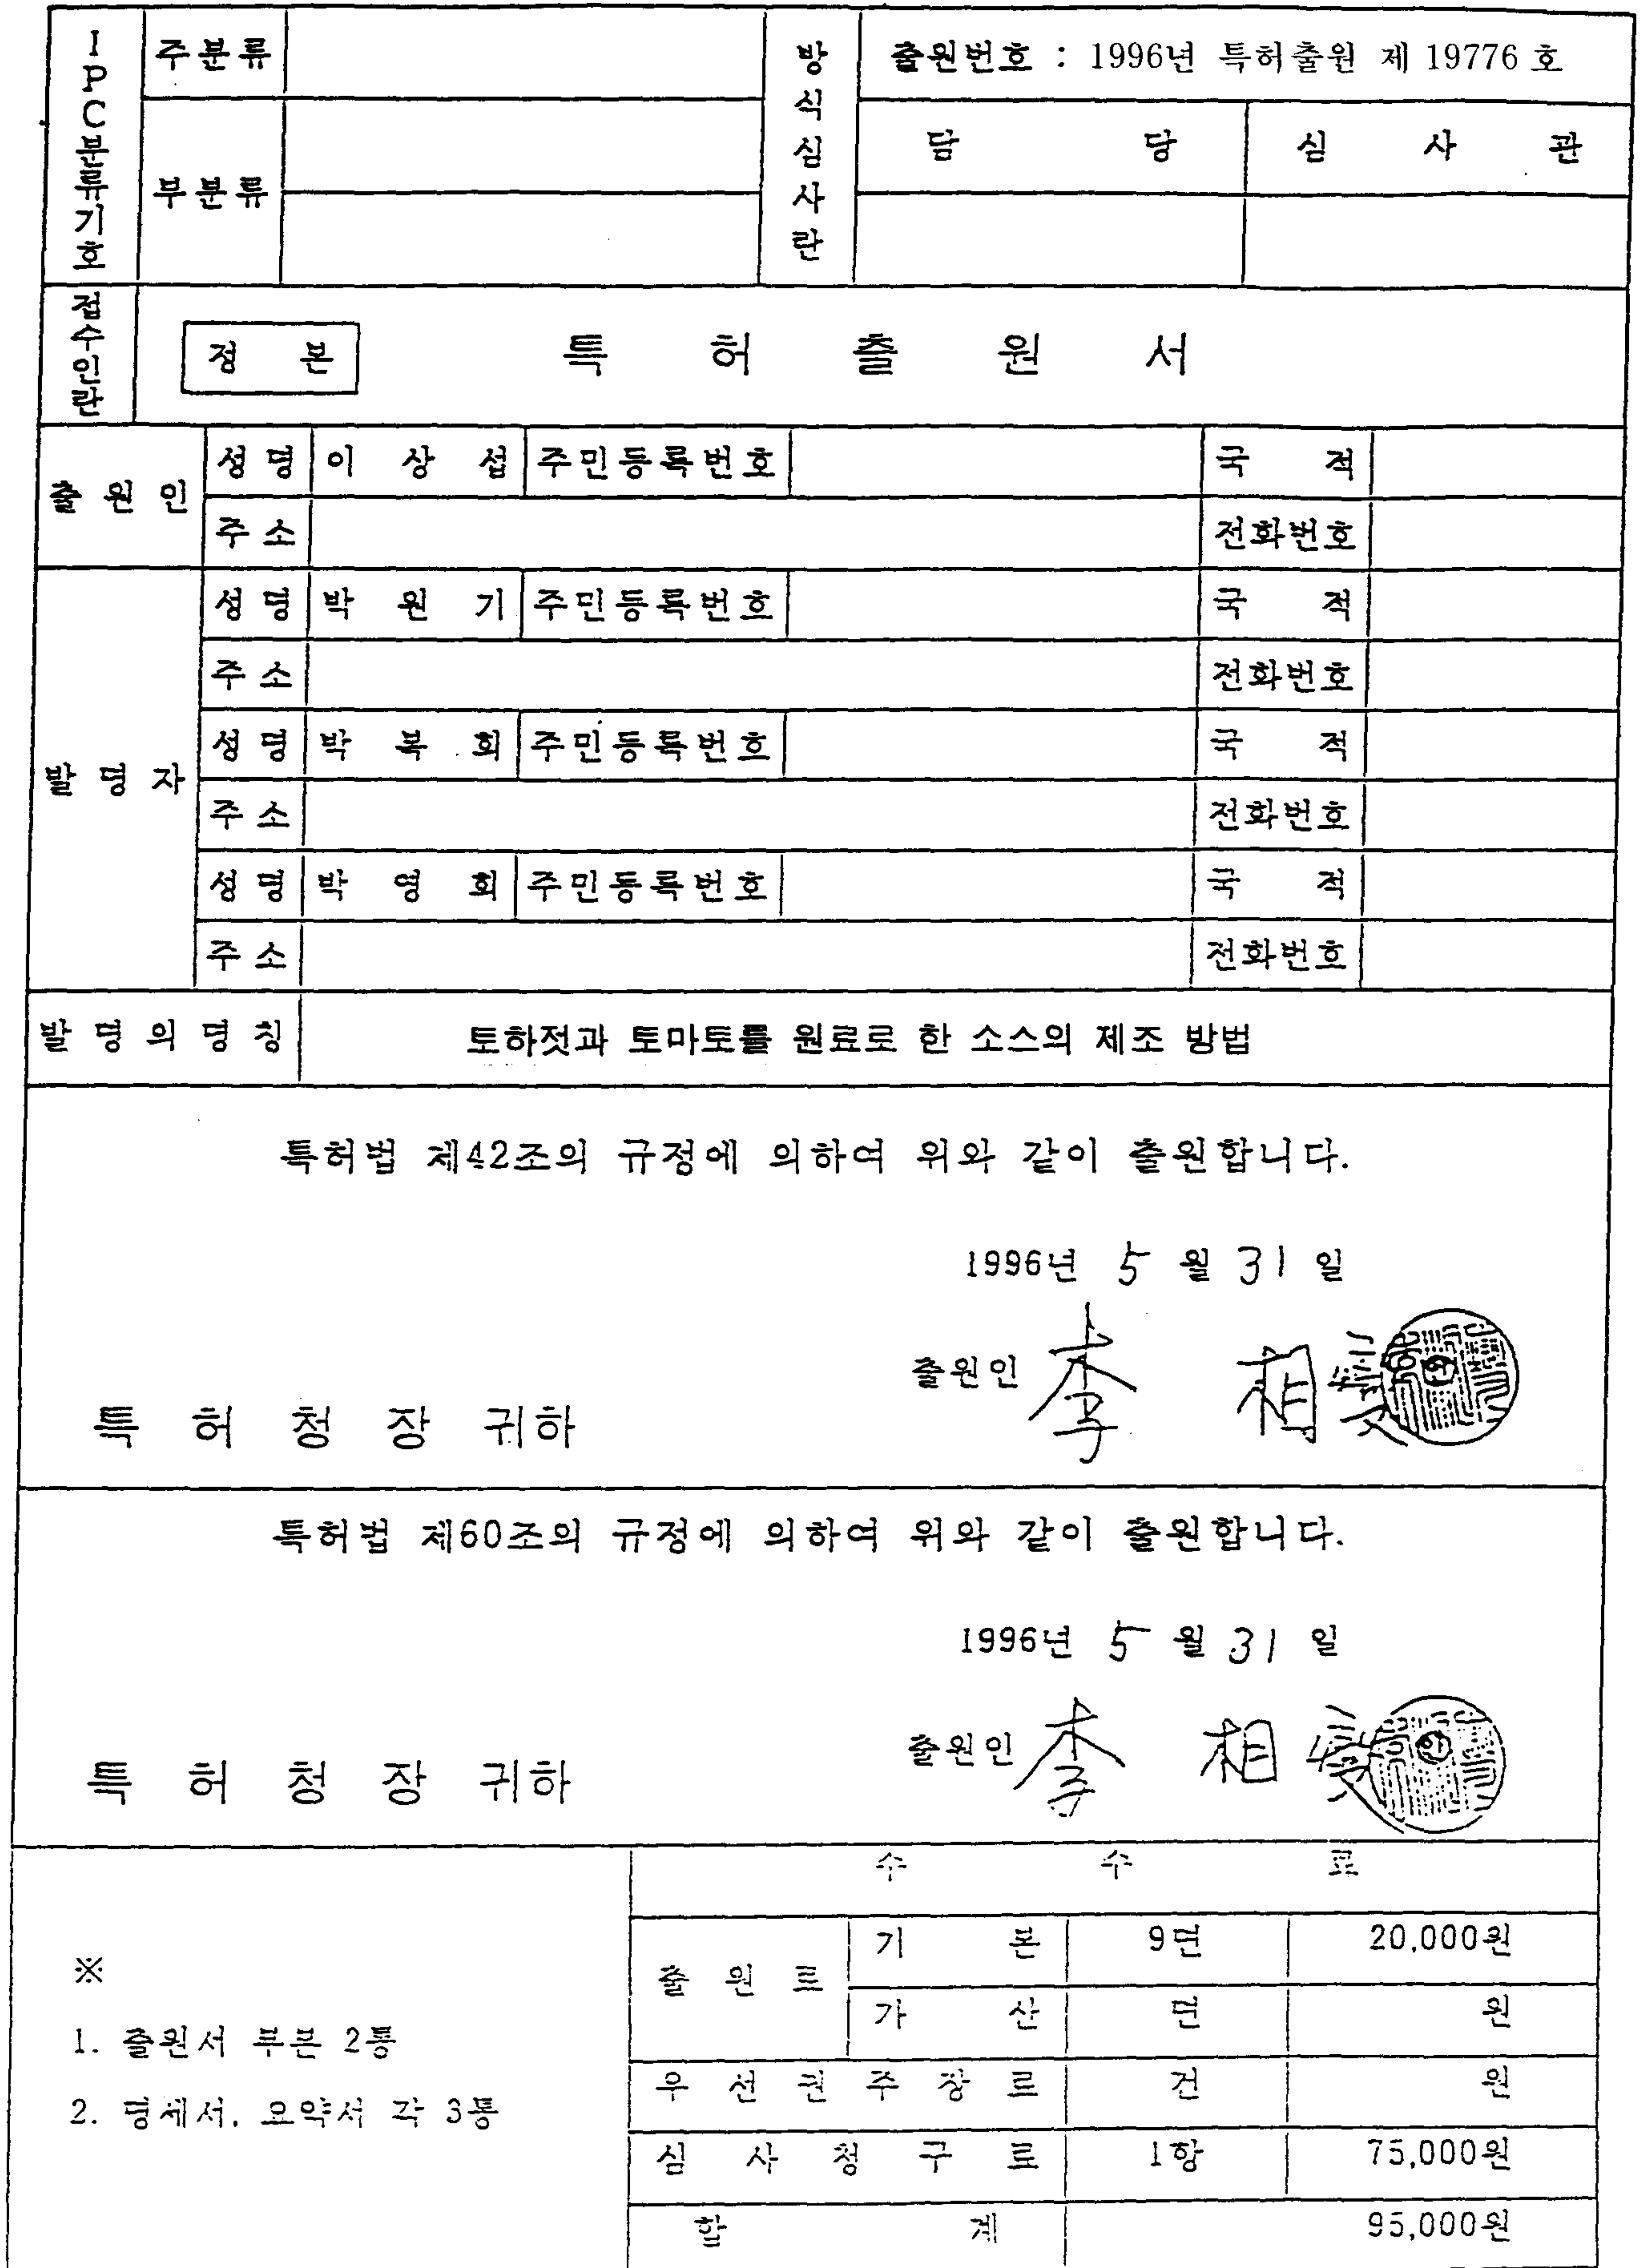 IPC분류기호
주분류
방식심사란
출원번호 : 1996년 특허출원 제 19776 호
부분류
담 당 심 사 관
접수인란
정 본 특 허 출 원 서
출 원 인 성 명 이 상 섭 주민등록번호 국 적
주 소 전화번호
발 명 자 성 명 박 원 기 주민등록번호 국 적
주 소 전화번호
성 명 박 복 희 주민등록번호 국 적
주 소 전화번호
성 명 박 영 희 주민등록번호 국 적
주 소 전화번호
발 명 의 명 칭 토하젓과 토마토를 원료로 한 소스의 제조 방법
특허법 제42조의 규정에 의하여 위와 같이 출원합니다.
1996년 5 월 31 일
출원인 李 相
특 허 청 장 귀하
특허법 제60조의 규정에 의하여 위와 같이 출원합니다.
1996년 5 월 31 일
출원인 李 相
특 허 청 장 귀하
수 수 료
출 원 료 기 본 9면 20,000원
가 산 면 원
우 선 권 주 장 료 건 원
심 사 청 구 료 1항 75,000원
합 계 95,000원
※
1. 출원서 부본 2통
2. 명세서, 요약서 각 3통